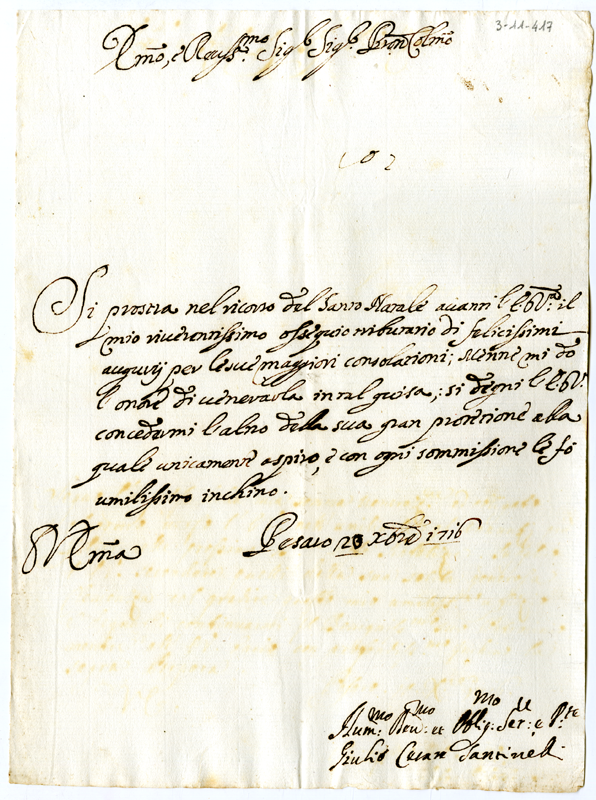 3-11-417
Em̃o, e Reu.ss.mo Sig.r Sig.r Pron Colmo
Si prostra nel ricorso del Santo Natale auanti l'E: V.ra il
mio riuerentissimo ossequio tributario di felicissimi
augurij per le sue maggiori consolationi; se ne mi do
l'onore di venerarla in tal guisa, si degni l'E: V.
concedermi l'altro della sua gran protetione alla
quale unicamente aspiro, e con ogni sommissione le fo
umilissimo inchino.
V Em̃a
Pesaro 20 Xbre 1716
Hum:mo Deu:mo et Obblig:mo Ser:
Giulio Cesare Santinelli